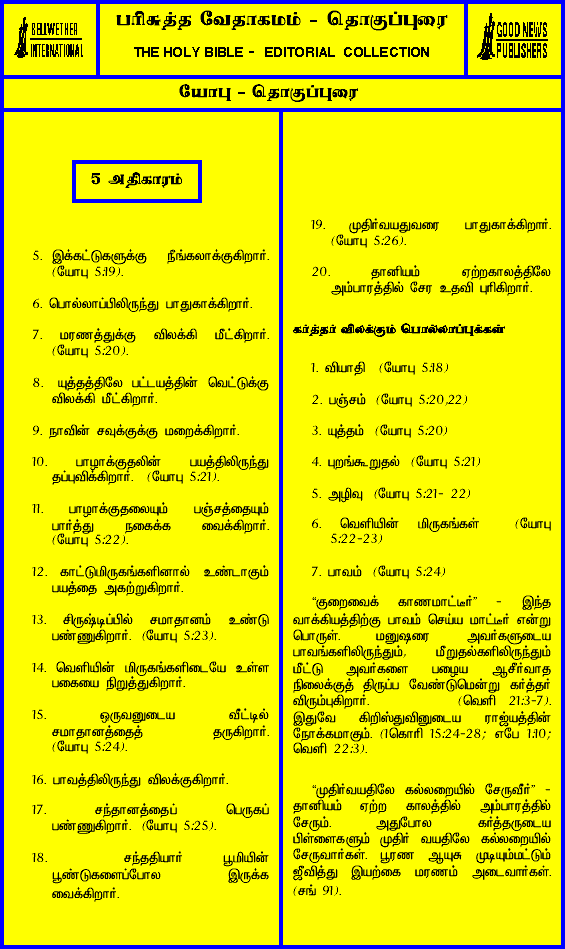 BELLWETHER
INTERNATIONAL
பரிசுத்த வேதாகமம் - தொகுப்புரை
THE HOLY BIBLE - EDITORIAL COLLECTION
GOOD NEWS
PUBLISHERS
யோபு - தொகுப்புரை
5 அதிகாரம்
5. இக்கட்டுகளுக்கு நீங்கலாக்குகிறார்.
(யோபு 5:19).
6. பொல்லாப்பிலிருந்து பாதுகாக்கிறார்.
7. மரணத்துக்கு விலக்கி மீட்கிறார்.
(யோபு 5:20).
8. யுத்தத்திலே பட்டயத்தின் வெட்டுக்கு
விலக்கி மீட்கிறார்.
9. நாவின் சவுக்குக்கு மறைக்கிறார்.
10. பாழாக்குதலின் பயத்திலிருந்து
தப்புவிக்கிறார். (யோபு 5:21).
11. பாழாக்குதலையும் பஞ்சத்தையும்
பார்த்து நகைக்க வைக்கிறார்.
(யோபு 5:22).
12. காட்டுமிருகங்களினால் உண்டாகும்
பயத்தை அகற்றுகிறார்.
13. சிருஷ்டிப்பில் சமாதானம் உண்டு
பண்ணுகிறார். (யோபு 5:23).
14. வெளியின் மிருகங்களிடையே உள்ள
பகையை நிறுத்துகிறார்.
15. ஒருவனுடைய வீட்டில்
சமாதானத்தைத் தருகிறார்.
(யோபு 5:24).
16. பாவத்திலிருந்து விலக்குகிறார்.
17. சந்தானத்தைப் பெருகப்
பண்ணுகிறார். (யோபு 5:25).
18. சந்ததியார் பூமியின்
பூண்டுகளைப்போல இருக்க
வைக்கிறார்.
19. முதிர்வயதுவரை பாதுகாக்கிறார்.
(யோபு 5:26).
20. தானியம் ஏற்றகாலத்திலே
அம்பாரத்தில் சேர உதவி புரிகிறார்.
கர்த்தர் விலக்கும் பொல்லாப்புக்கள்
1. வியாதி (யோபு 5:18)
2. பஞ்சம் (யோபு 5:20,22)
3. யுத்தம் (யோபு 5:20)
4. புறங்கூறுதல் (யோபு 5:21)
5. அழிவு (யோபு 5:21- 22)
6. வெளியின் மிருகங்கள் (யோபு
5:22-23)
7. பாவம் (யோபு 5:24)
"குறைவைக் காணமாட்டீர்" - இந்த
வாக்கியத்திற்கு பாவம் செய்ய மாட்டீர் என்று
பொருள். மனுஷரை அவர்களுடைய
பாவங்களிலிருந்தும், மீறுதல்களிலிருந்தும்
மீட்டு அவர்களை பழைய ஆசீர்வாத
நிலைக்குத் திருப்ப வேண்டுமென்று கர்த்தர்
விரும்புகிறார். (வெளி 21:3-7).
இதுவே கிறிஸ்துவினுடைய ராஜ்யத்தின்
நோக்கமாகும். (1கொரி 15:24-28; எபே 1:10;
வெளி 22:3).
"முதிர்வயதிலே கல்லறையில் சேருவீர்" -
தானியம் ஏற்ற காலத்தில் அம்பாரத்தில்
சேரும். அதுபோல கர்த்தருடைய
பிள்ளைகளும் முதிர் வயதிலே கல்லறையில்
சேருவார்கள். பூரண ஆயுசு முடியும்மட்டும்
ஜீவித்து இயற்கை மரணம் அடைவார்கள்.
(சங் 91).